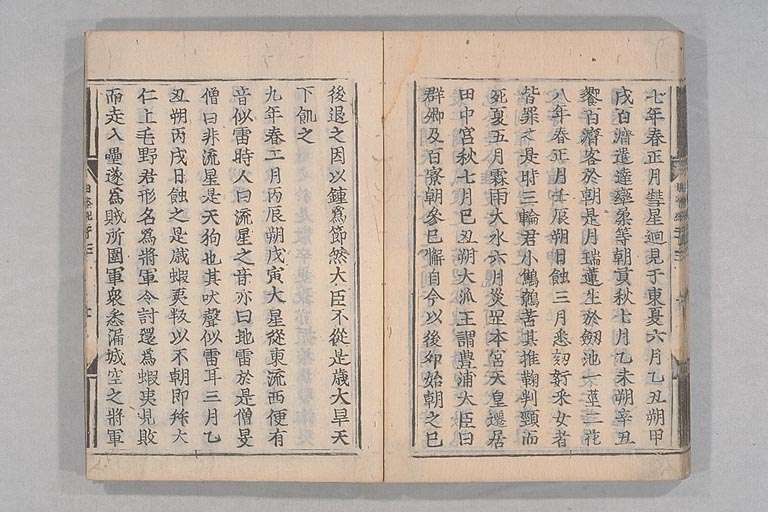 七年春正月彗星廻見于東夏六月乙丑朔甲
戌百濟遣達率柔等朝貢秋七月乙未朔辛丑
饗百濟客於朝是月瑞蓮生於劒池一莖二花
八年春正月壬辰朔日蝕三月悉劾奸采女者
皆罪之是時三輪君小鷦鷯苦其推鞫刺頸而
死夏五月霖雨大水六月災岡本宮天皇遷居
田中宮秋七月己丑朔大派王謂豊浦大臣曰
群卿及百寮朝參已懈自今以後卯始朝之巳
後退之因以鍾爲節然大臣不從是歳大旱天
下飢之
九年春二月丙辰朔戊寅大星從東流西便有
音似雷時人曰流星之音亦曰地雷於是僧旻
僧曰非流星是天狗也其吠聲似雷耳三月乙
丑朔丙戌日蝕之是歳蝦夷叛以不朝即拜大
仁上毛野君形名爲將軍令討還爲蝦夷見敗
而走入壘遂爲賊所圍軍衆悉漏城空之將軍